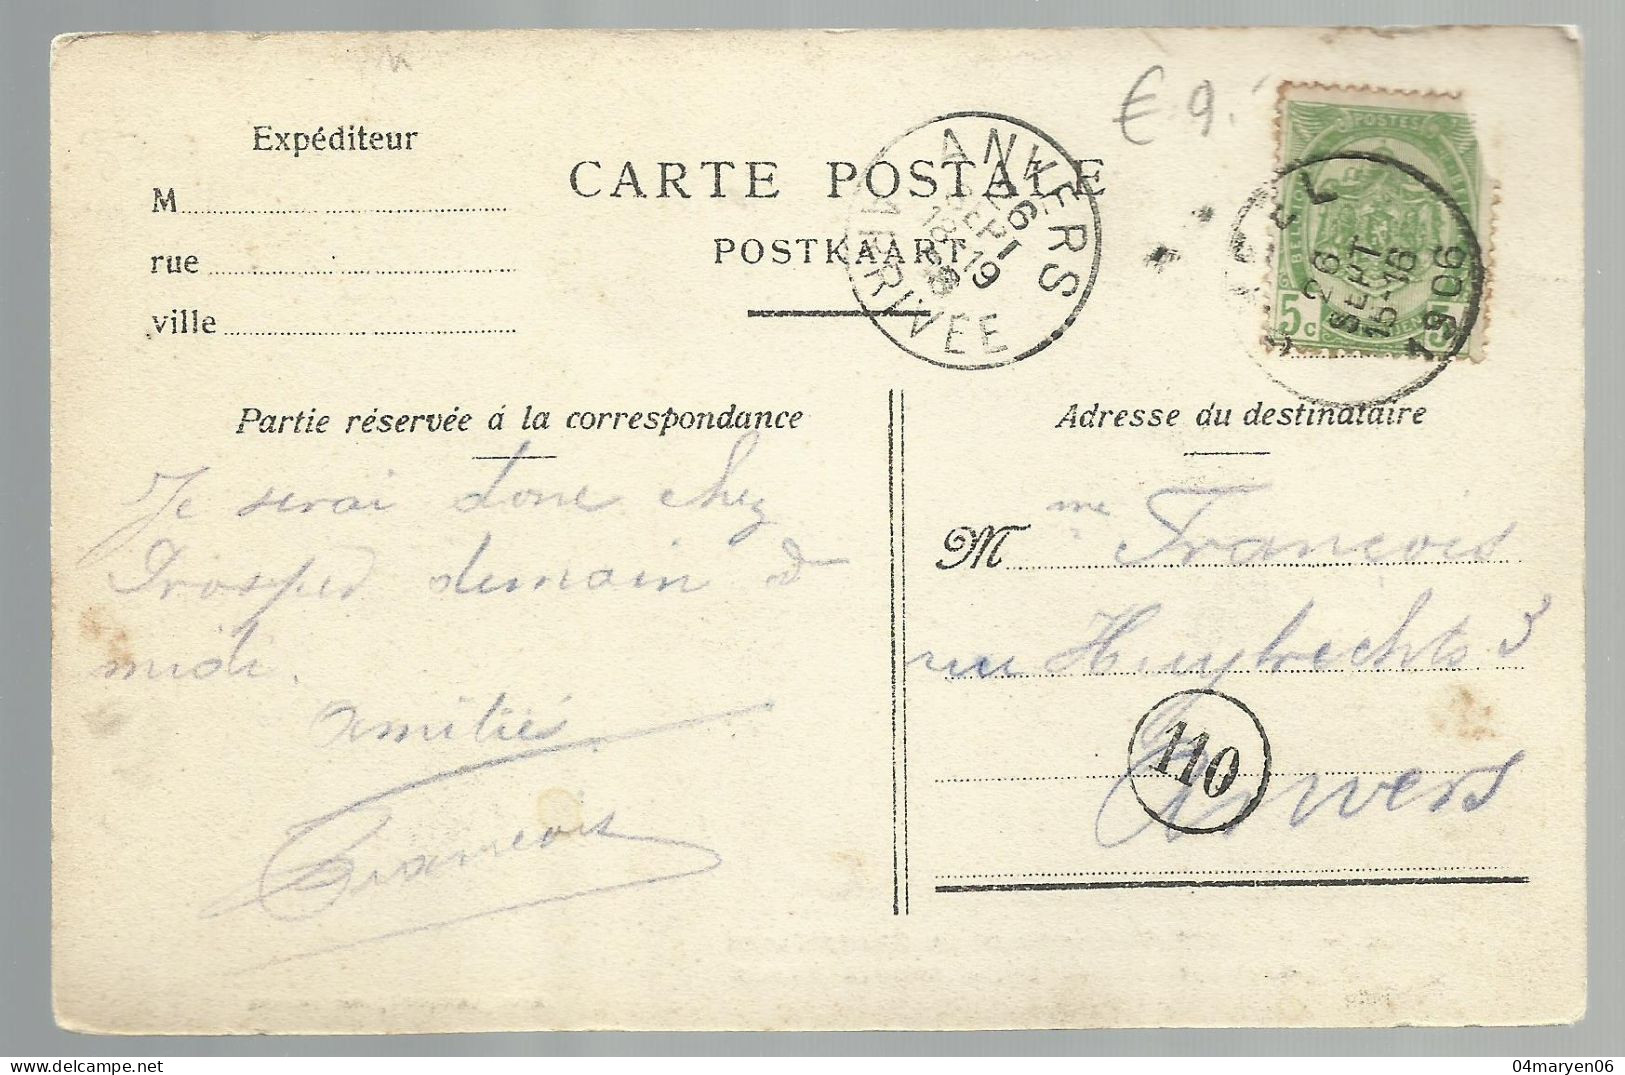 € 9.
Expéditeur
M
rue
ville
CARTE POSTALE
POSTKAART
ANVERS
26
SEPT
18-19
19
ARRIVÉE
POSTES
5c
26
SEPT
15-16
1906
Partie réservée á la correspondance
Adresse du destinataire
Je serai donc chez
Prosper demain
midi.
amitiés
François
Mme François
rue Huybrechts 3
Anvers
110
04maryen06